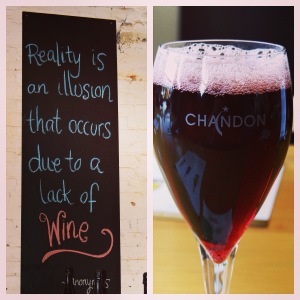 Reality is
an illusion
that occurs
due to a
lack of
Wine
CHANDON